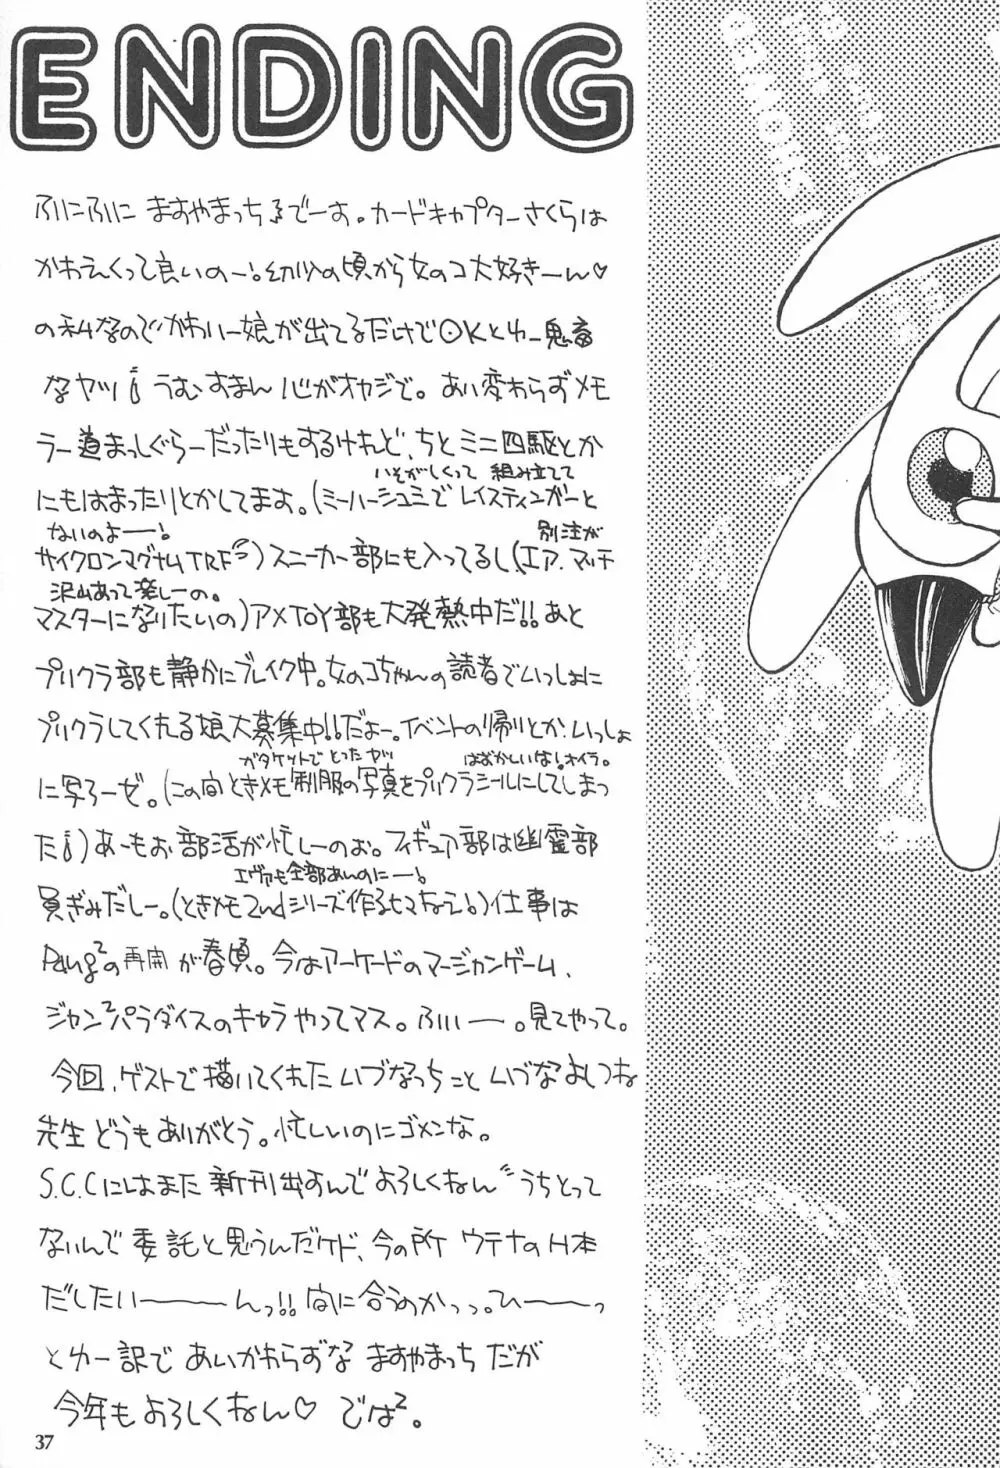 ENDING
ふにふにに ますやまっちょでーす。カードキャプターさくらは
かわえくって良いのー!幼少の頃から女のコ大好きーん♡
の私なのでかわいー娘が出てるだけでOKとゆー鬼畜
なヤツ!うむすまん 心がオヤジで。あい変わらずメモ
ラー道まっしぐらーだったりもするけれど、ちとミニ四駆とか
いそがしくって 組み立てて
にもはまったりとかしてます。(ミーハーシュミで レイスティンガーと
ないのよーー! 別注が
サイクロンマグナムTRF)スニーカー部にも入ってるし(エア.マッチ
沢山あって楽しーの。
マスターになりたいの)アメTOY部も大発熱中だ!!あと
プリクラ部も静かにブレイク中。女のコちゃんの読者でいっしょに
プリクラしてくれる娘大募集中!!だよー。イベントの帰りとか、いっしょ
ガタケットでとったヤツ はずかしいな!オイラ。
に写ろーぜ。(この間ときメモ制服の写真をプリクラシールにしてしまっ
た!)あーもお部活が忙しーのぉ。フィギュア部は幽霊部
エヴァも全部あんのにー!
員ぎみだしー。(ときメモ2ndシリーズ作るヒマねえ!)仕事は
Pang²の再開が春頃。今はアーケードのマージャンゲーム、
ジャン²パラダイスのキャラやってマス。ふいー。見てやって。
今回、ゲストで描いてくれたいづなっちこといづなよしつね
先生どうもありがとう。忙しいのにゴメンな。
S.C.Cにはまた新刊出すんでよろしくねん うちとって
ないんで委託と思うんだケド、今の所 ウテナのH本
だしたいーーーんっ!!間に合うのかっっ。ひーーっ
とゆー訳で あいかわらずな ますやまっち だが
今年もよろしくねん♡ では²。
37